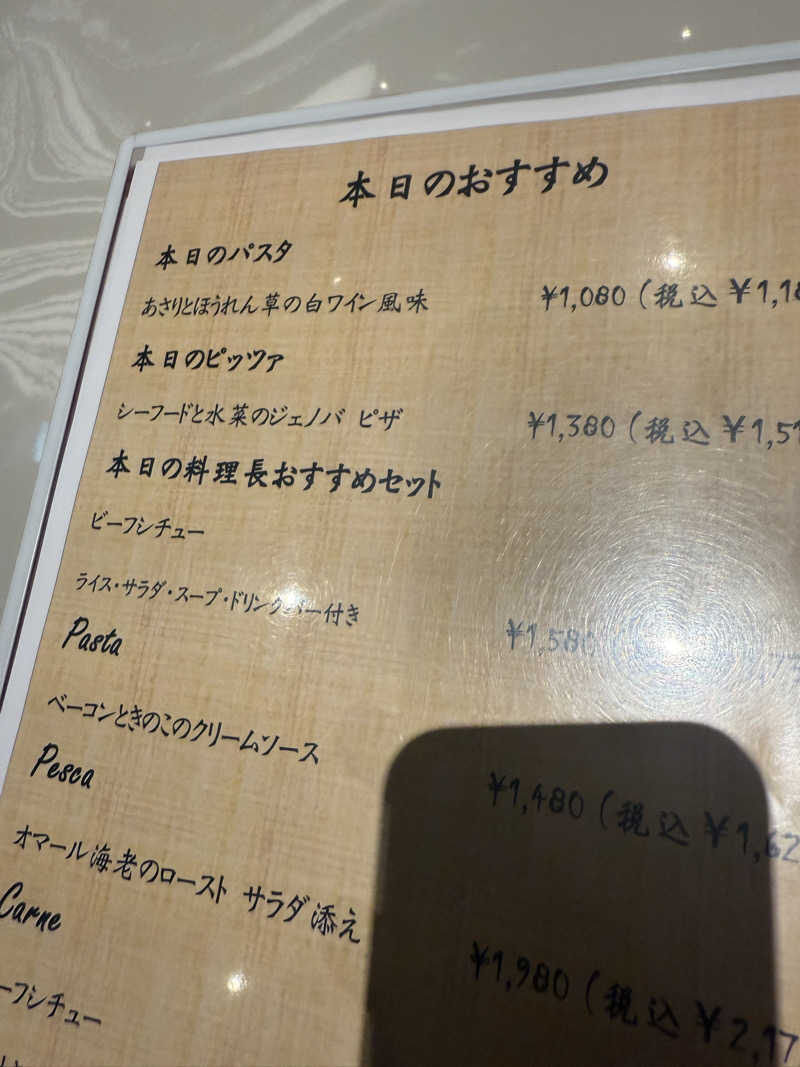 本日のおすすめ
本日のパスタ
あさりとほうれん草の白ワイン風味 ¥1,080(税込¥1,18
本日のピッツァ
シーフードと水菜のジェノバ ピザ ¥1,380(税込¥1,51
本日の料理長おすすめセット
ビーフシチュー
ライス・サラダ・スープ・ドリンクバー付き ¥1,580
Pasta
ベーコンときのこのクリームソース ¥1,480(税込¥1,62
Pesca
オマール海老のロースト サラダ添え ¥1,980(税込¥2,17
Carne
ーフシチュー